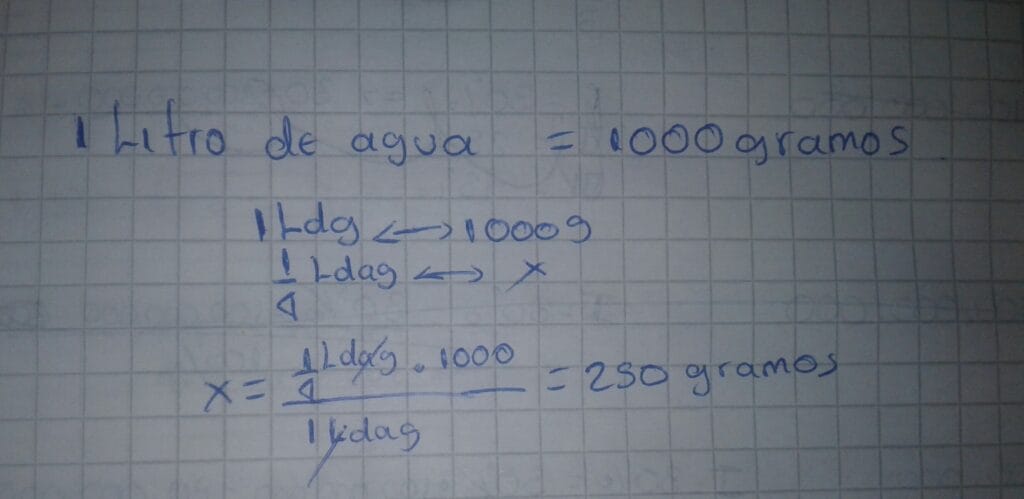 1 Litro de agua = 1000 gramos
1 Ldg <-> 1000g
1/4 Ldag <-> x
x = 1/4 Ldag . 1000 / 1 Ldag = 250 gramos